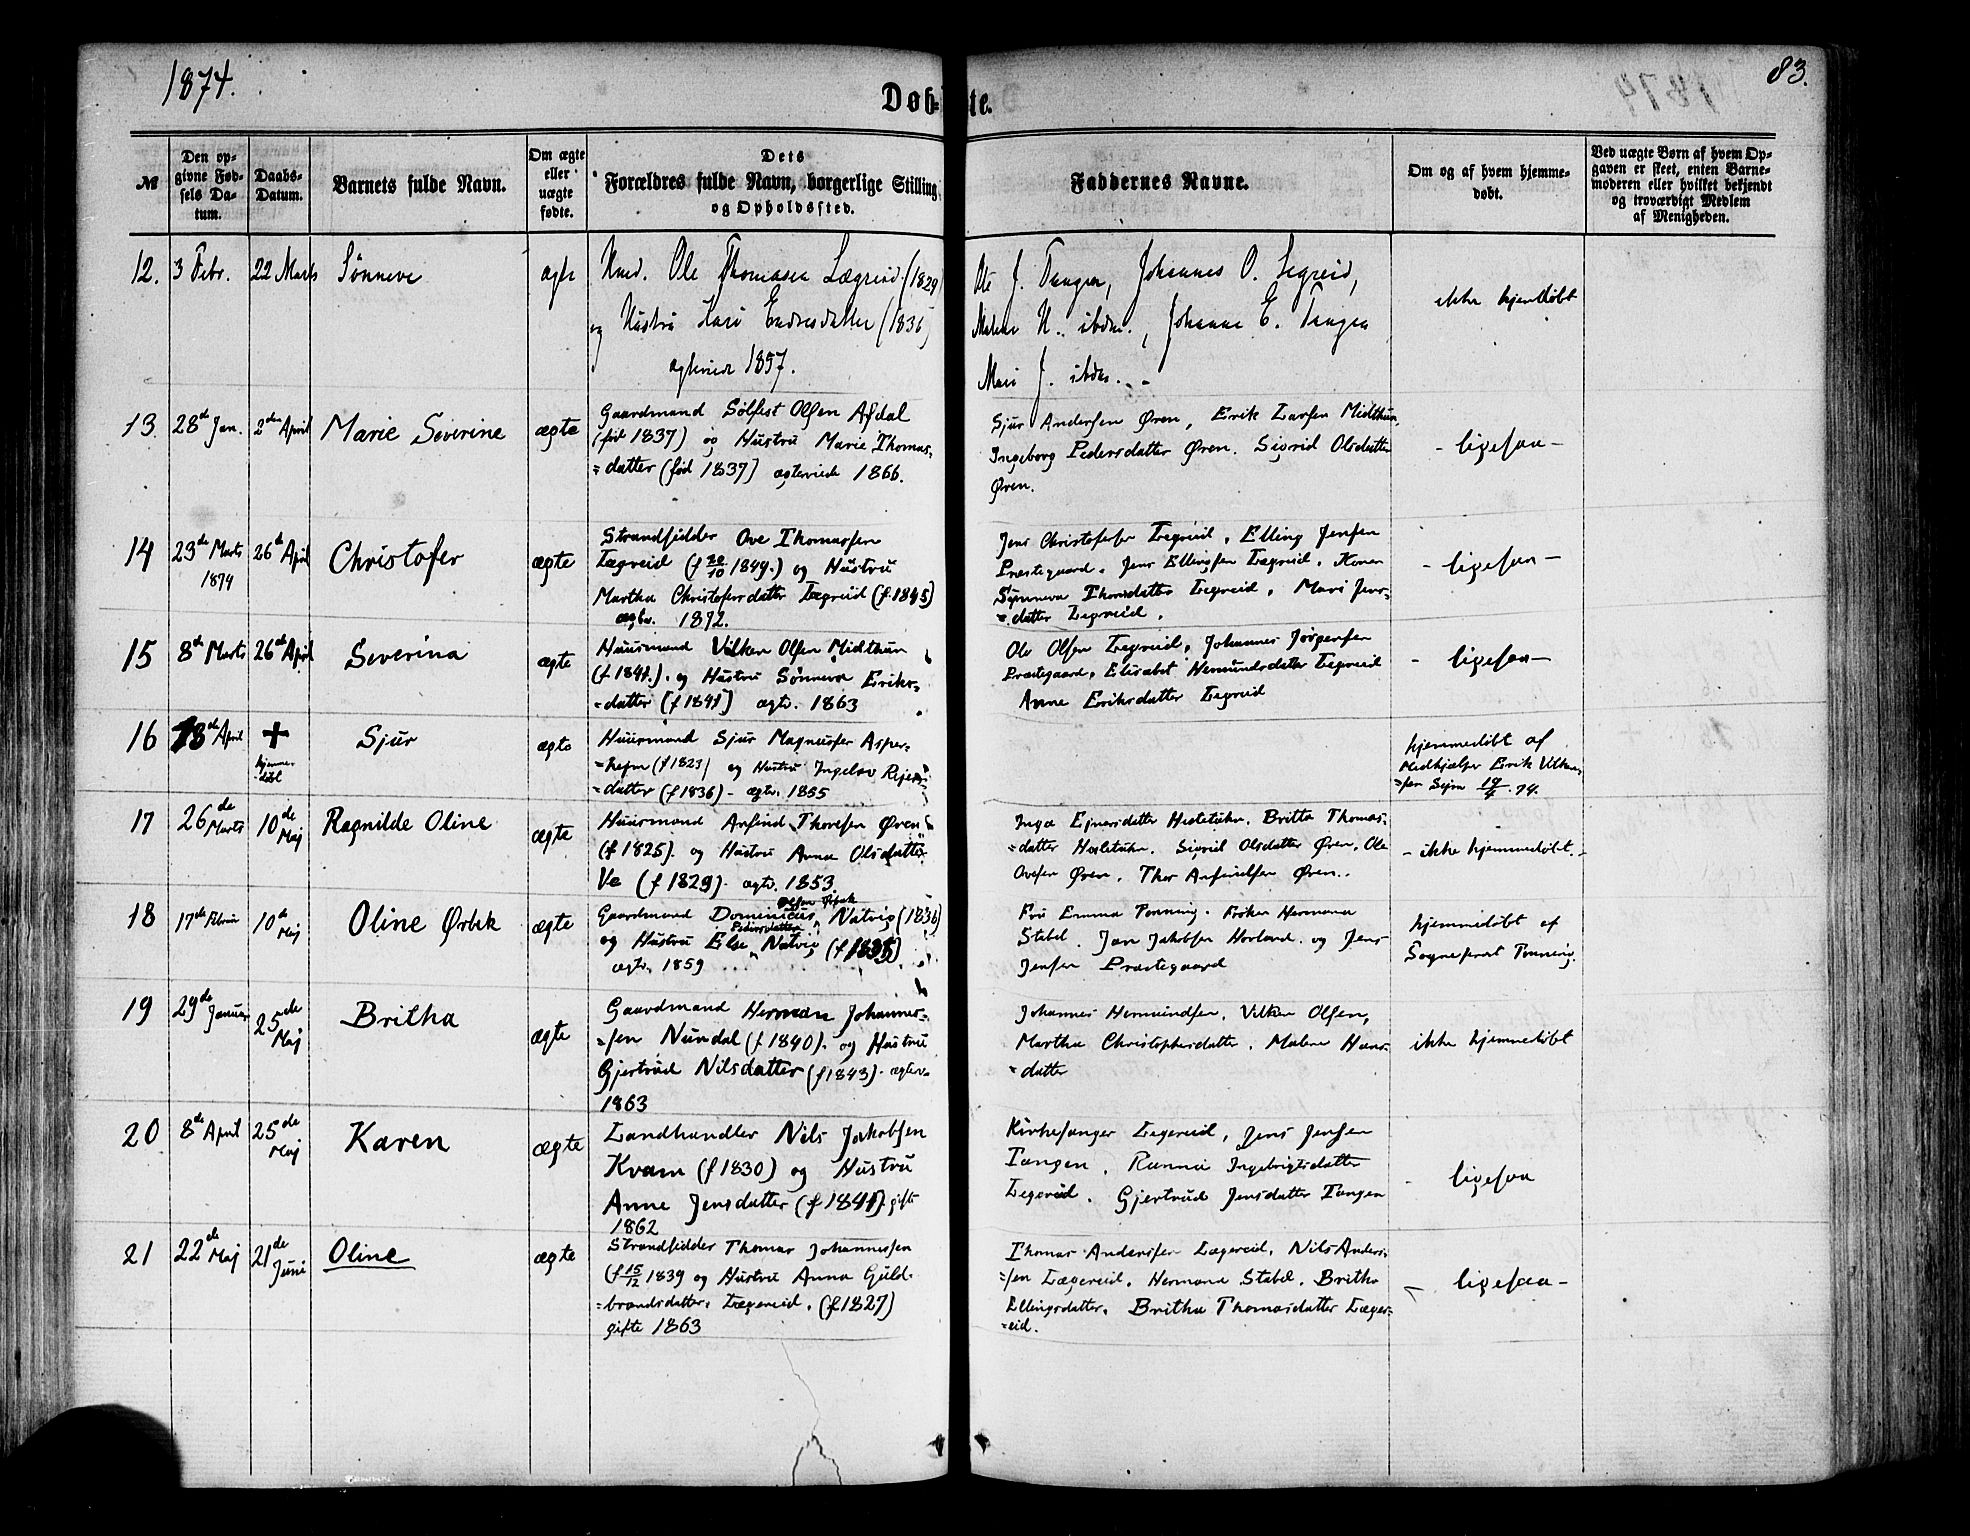 1874.
83.
Døb- te.
№
Den opgivne Fødsels Datum.
Daabs-Datum.
Barnets fulde Navn.
Om ægte eller uægte fødte.
Dets Forældres fulde Navn, borgerlige Stilling og Opholdssted.
Faddernes Navne.
Om og af hvem hjemmedøbt.
Ved uægte Børn af hvem Opgaven er skeet, enten Barnemoderen eller hvilket bekjendt og troværdigt Medlem af Menigheden.
12. 3 Febr. 22 Marts Sønneve ægte
Hmd. Ole Thomasen Lægreid (1829)
og Hustru Kari Endresdatter (1836)
ægteviede 1857.
Ole J. Tangen, Johannes O. Legreid,
Malene H. ibdm., Johanne E. Tangen
Mari J. ibdm.
ikke hjemdøbt
13. 28de Jan. 2den April Marie Severine ægte
Gaardmand Sølfest Olsen Afdal
(født 1837) og Hustru Marie Thomas-
=datter (fød 1837) ægteviede 1866.
Sjur Andersen Øren, Erik Larsen Midthun
Ingeborg Pedersdatter Øren. Sigrid Olsdatter
Øren.
- ligesaa -
14 23de Marts 1874 26de April Christofer ægte
Strandsidder Ove Thomassen
Lægreid (f 20/10 1849.) og Hustru
Martha Christofersdatter Lægreid (f. 1845)
ægtv. 1872.
Jens Christofersen Legreid, Elling Jensen
Præstegaard. Jens Ellingsen Lægreid. Konen
Synneva Thorsdatter Legreid, Mari Jens-
=datter Legreid.
- ligesaa -
15 8de Marts 26de April Severina ægte
Huusmand Vilken Olsen Midthun
(f 1841.). og Hustru Sønneva Eriks-
=datter (f 1841) ægtv. 1863
Ole Olsen Legreid, Johannes Jørgensen
Præstegaard, Elisabet Hermundsdatter Legreid
Anne Eriksdatter Legreid
- ligesaa -
16 18de April + hjemme-døbt Sjur ægte
Huusmand Sjur Magnussen Asper-
(f 1823) og Hustru
=datter (f 1836) - ægtv. 1855
hjemmedøbt af
Medhjælper Erik Vilken-
=sen 19/4 74.
17 26de Marts 10de Maj Ragnilde Oline ægte
Huusmand Anfind Thoresen Øren
(f 1825). og Hustru Anna Olsdatter
Ve (f 1829). ægtv. 1853.
Inga Ejnarsdatter Hestetuhn. Britta Thomas-
=datter Hestetuhn. Sigrid Olsdatter Øren, Ole
Ovesen Øren. Thor Anfindsen Øren.
- ikke hjemmedøbt. -
18 17de Februar 10de Maj Oline Ørbek ægte
Olsen Ørbek
Gaardmand Dominicus Natvig (1836)
Pedersdatter
og Hustru Else Natvig (f 1835)
ægtv. 1859
Fru Emma Tønning. Frøken Hermana
Stabel. Jan Jakobsen Hovland. og Jens
Jensen Præstegaard
hjemmedøbt af
Sogneprest Tønning.
19 29de Januar 25de Maj Britha ægte
Gaardmand Herman Johannes-
=sen Nundal (f 1840). og Hustru
Gjertrud Nilsdatter (f 1843). ægtev.
1863
Johannes Hermundsen, Vilken Olsen,
Martha Christophersdatter, Malene Hans-
=datter
ikke hjemmedøbt
20 8de April 25de Maj Karen ægte
Landhandler Nils Jakobsen
Kvam (f 1830) og Hustru
Anne Jensdatter (f 1841) gifte
1862
Kirkesanger Legereid, Jens Jensen
Tangen, Ranna Ingebrigtsdatter
Legereid. Gjertrud Jensdatter Tangen
- ligesaa
21 22de Maj 21de Juni Oline ægte
Strandsidder Thomas Johannessen
(f 15/12 1839 og Hustru Anna Guld-
=brandsdatter. Lægereid. (f 1827)
gifte 1863
Thomas Andersen Lægereid, Nils Anders-
=sen Lægereid. Hermana Stabel. Britha
Ellingsdatter, Britha Thomasdatter Læger-
=eid.
- ligesaa -